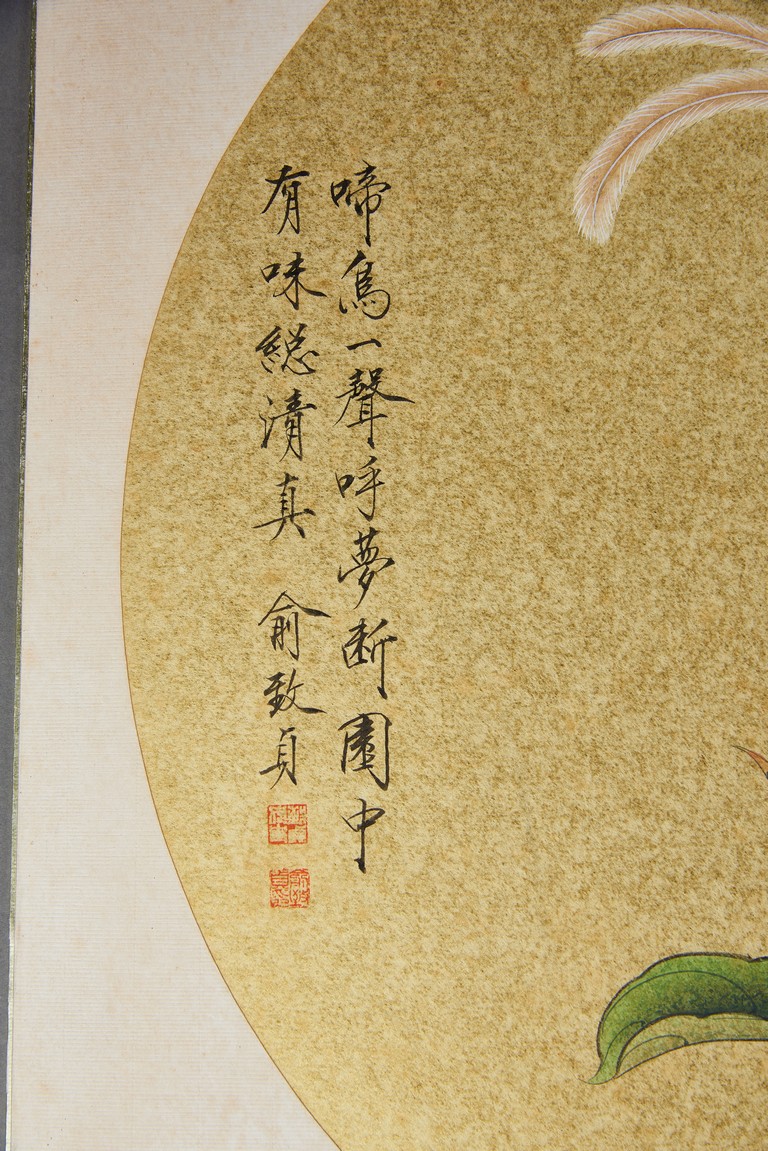 啼鳥一聲呼夢断園中
有味総清真 俞致貞